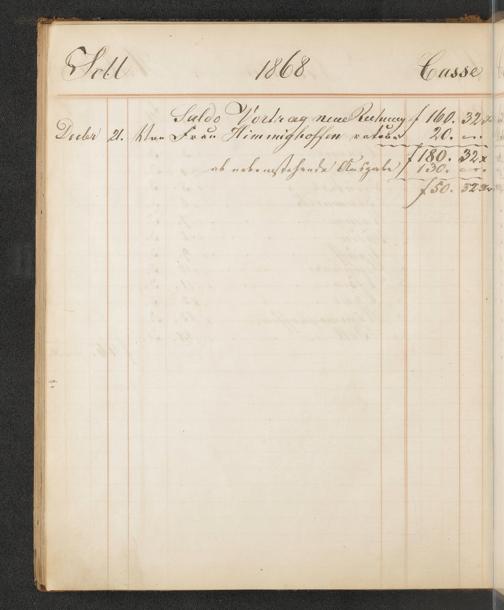 Soll 1868 Casse
Saldo Vortrag neue Rechnung f 160. 32 x
Decbr 21. Von Frau Himmighoffen retour 20. "
f 180. 32 x
ab nebenstehende Ausgabe f 130. "
f 50. 32 x